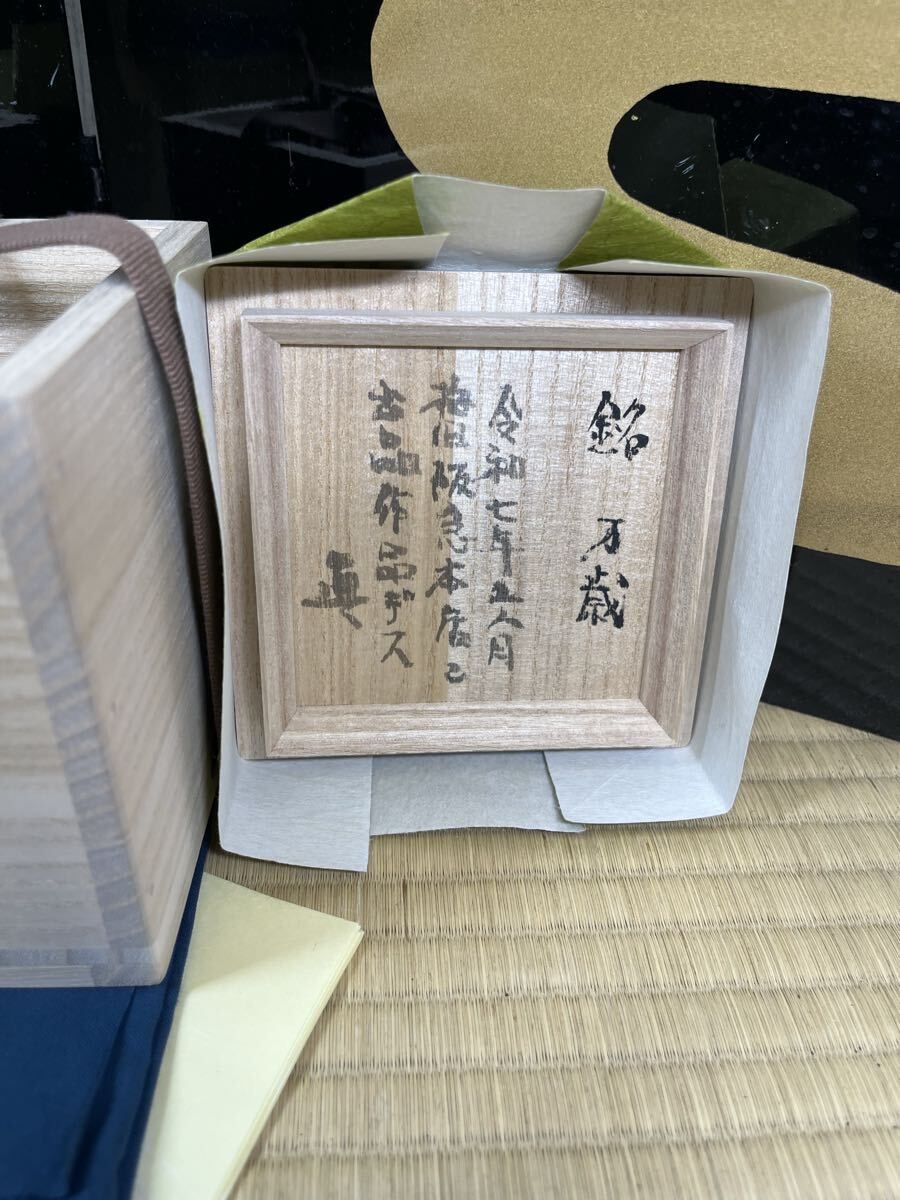 銘 万歳
令和七年五月
梅田阪急本店ニ
出品作品デス
眞